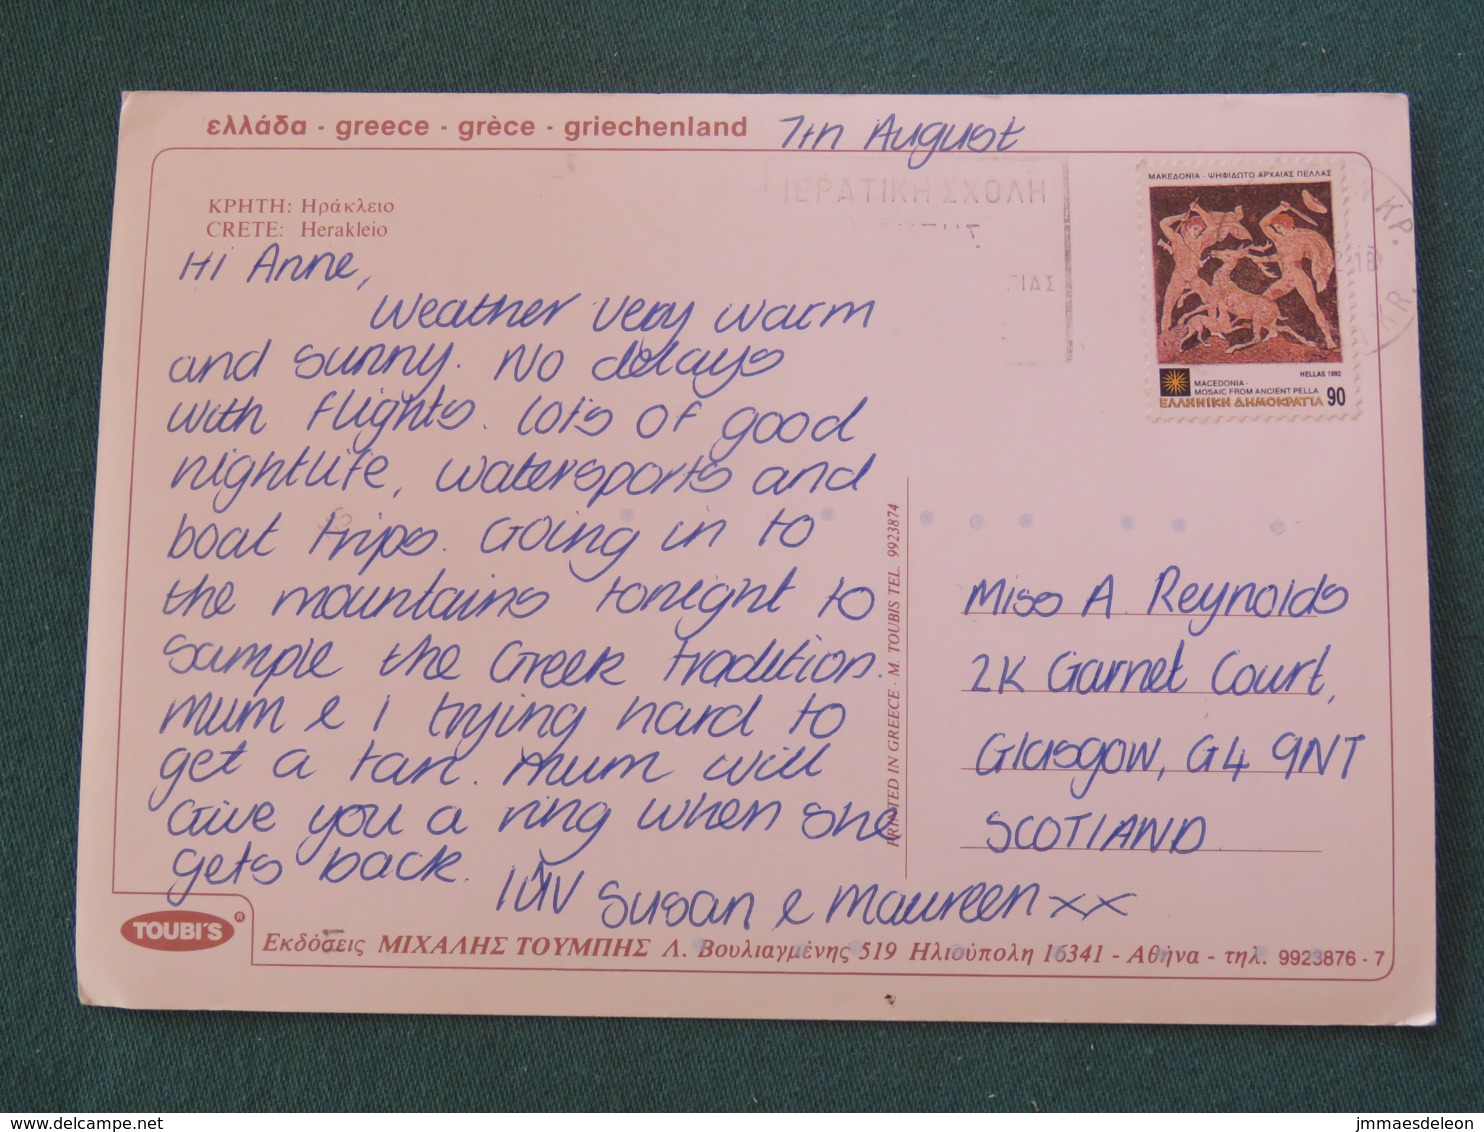 ελλάδα - greece - grèce - griechenland
7th August
ΚΡΗΤΗ: Ηράκλειο
CRETE: Herakleio
Hi Anne,
Weather very warm
and sunny. No delays
with flights. Lots of good
nightlife, watersports and
boat trips. Going in to
the mountains tonight to
sample the Greek tradition.
Mum & I trying hard to
get a tan. Mum will
give you a ring when she
gets back.
luv Susan & Maureen xx
ΙΕΡΑΤΙΚΗ ΣΧΟΛΗ
ΜΑΚΕΔΟΝΙΑ - ΨΗΦΙΔΩΤΟ ΑΡΧΑΙΑΣ ΠΕΛΛΑΣ
HELLAS 1992
MACEDONIA -
MOSAIC FROM ANCIENT PELLA
ΕΛΛΗΝΙΚΗ ΔΗΜΟΚΡΑΤΙΑ 90
PRINTED IN GREECE - M. TOUBIS TEL. 9923874
Miss A. Reynolds
2K Garnet Court,
Glasgow, G4 9NT
SCOTLAND
TOUBI'S®
Εκδόσεις ΜΙΧΑΛΗΣ ΤΟΥΜΠΗΣ Λ. Βουλιαγμένης 519 Ηλιούπολη 16341 - Αθήνα - τηλ. 9923876 - 7
www.delcampe.net
jmmaesdeleon